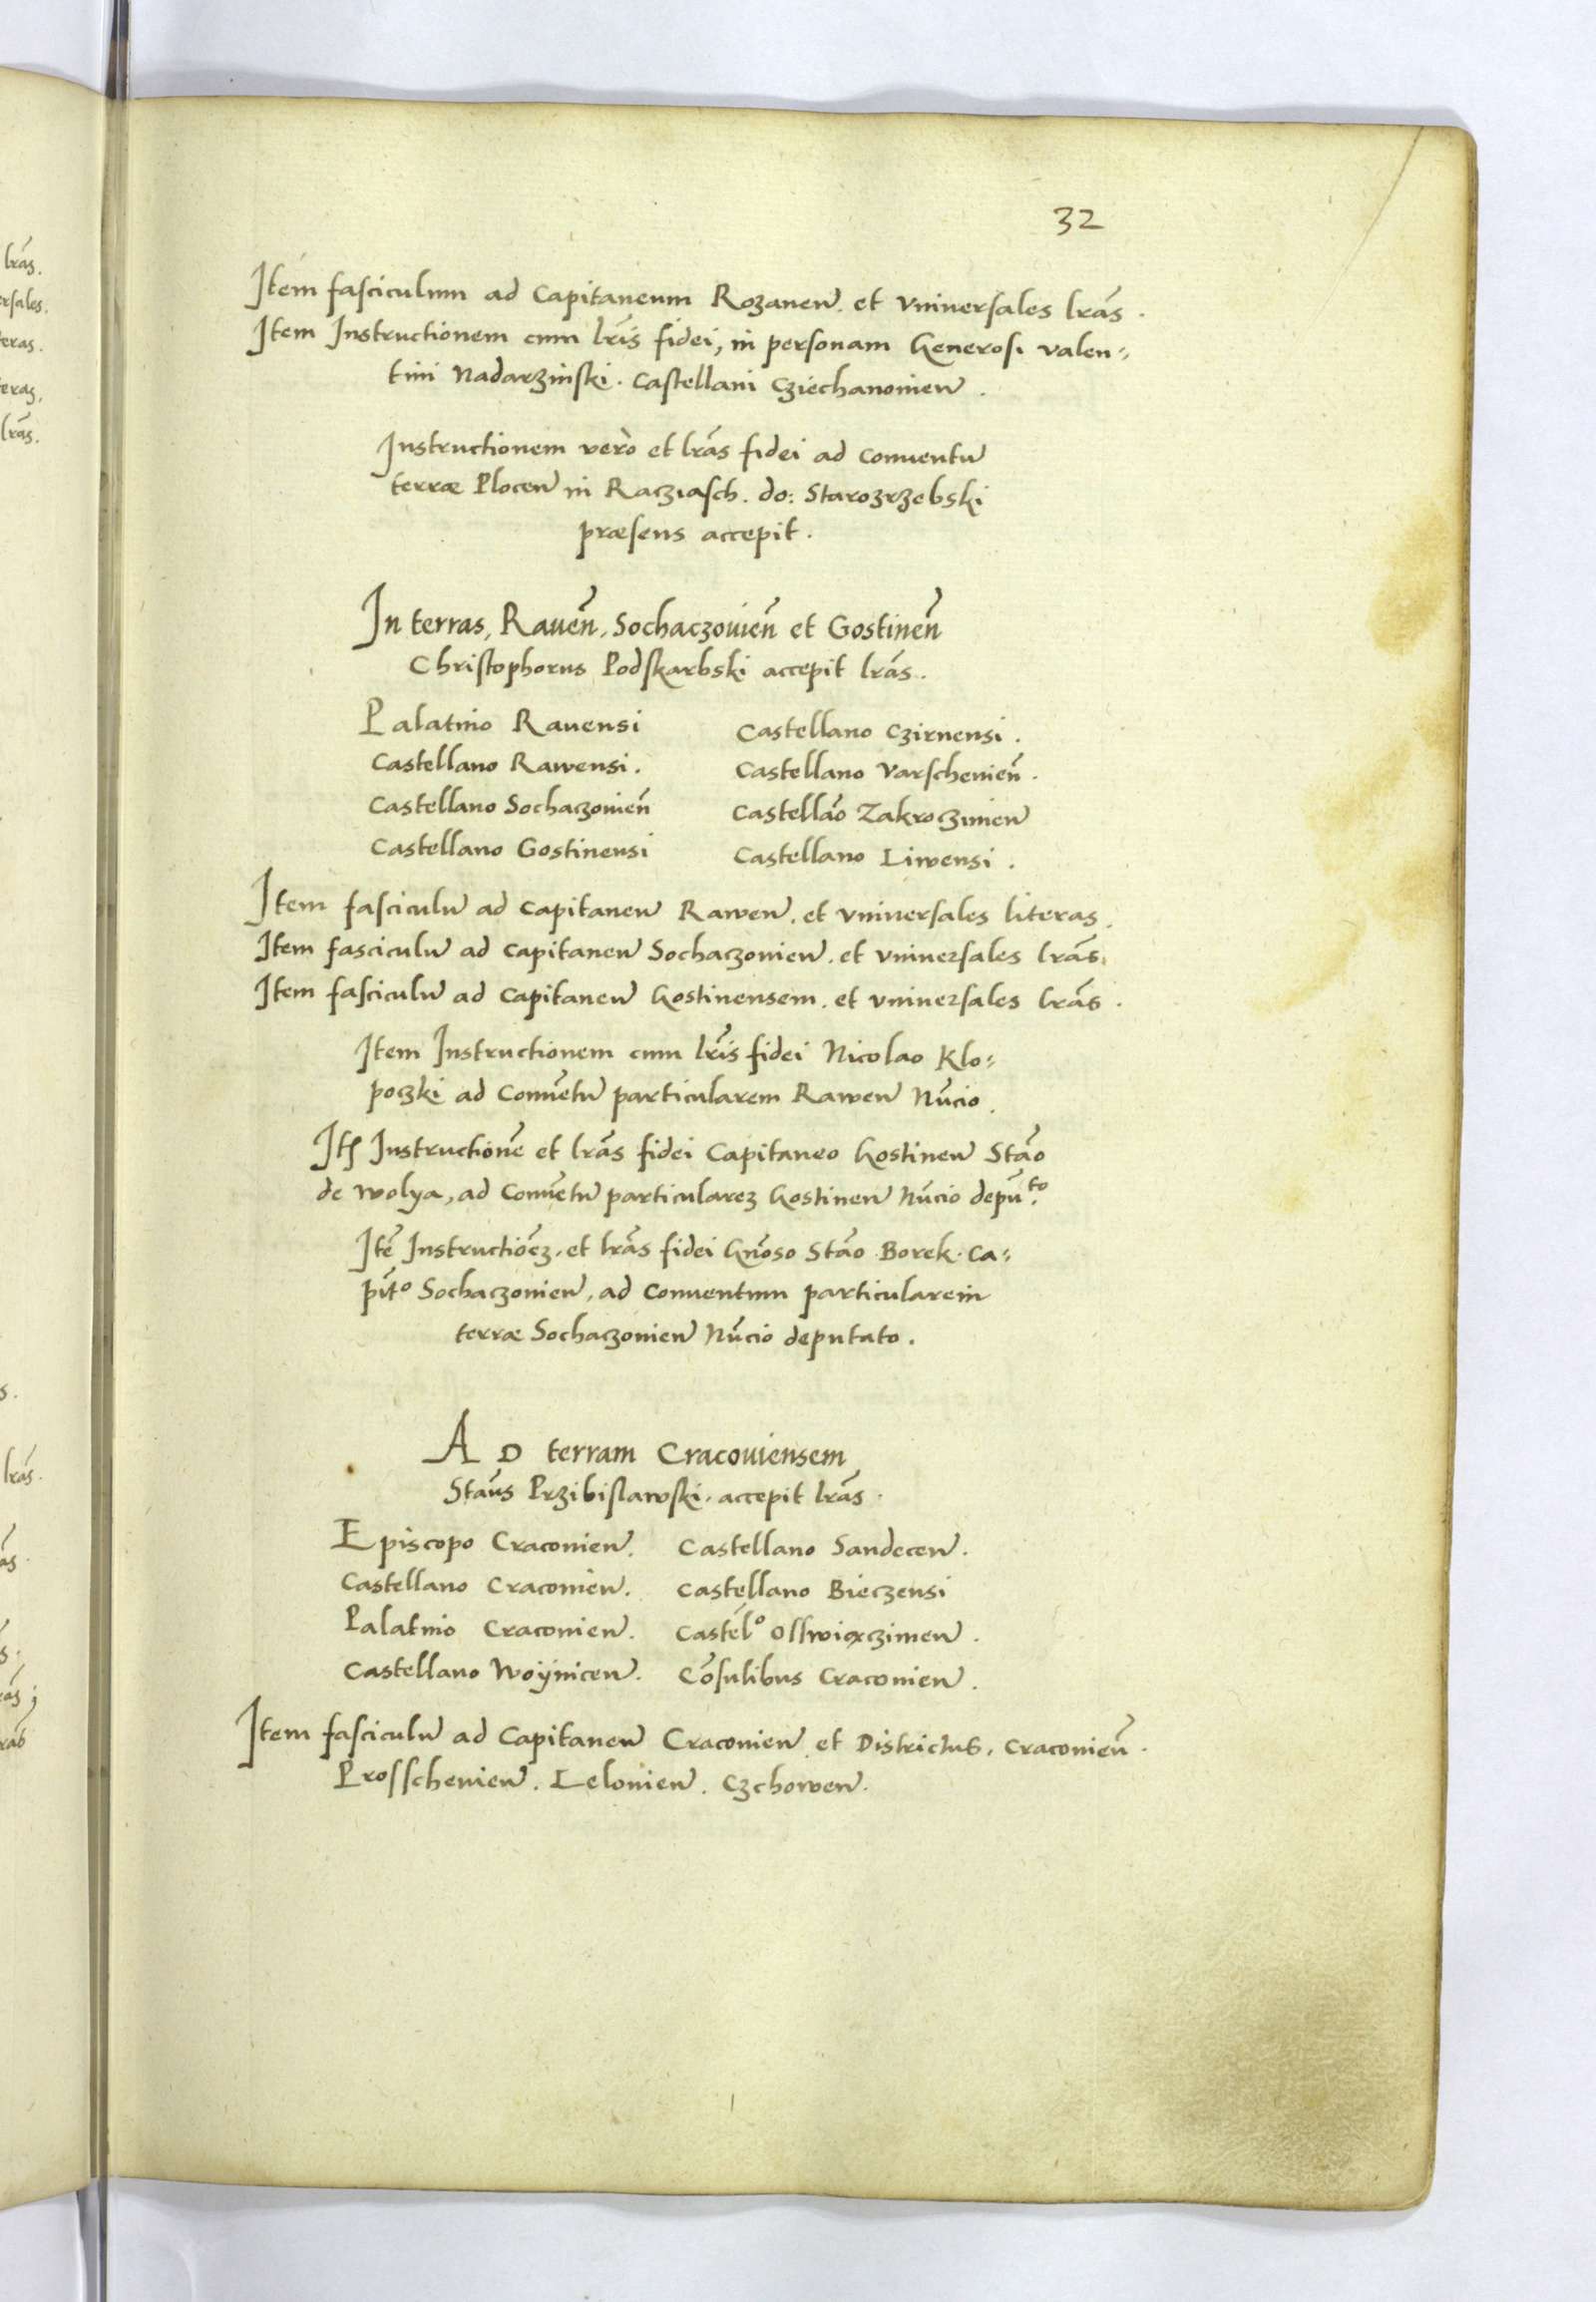 32
Item fasciculum ad Capitaneum Rozanen. et vniuersales lrãs.
Item Instructionem cum lrĩs fidei, in personam Generosi valen=
tini Nadarzinski. Castellani Cziechanouien.
Instructionem verò et lrãs fidei ad Conuentu
terræ Plocen in Racziasch. do: Starozrzebski
præsens accepit.
In terras, Rauen̄, Sochaczouien̄ et Gostinen̄
Christophorus Podskarbski accepit lrãs.
Palatino Rauensi
Castellano Czirnensi.
Castellano Rawensi.
Castellano Varscheuien̄.
Castellano Sochaczouien̄
Castellão Zakroczimen
Castellano Gostinensi
Castellano Liwensi.
Item fasciculu ad Capitaneu Rawen. et vniuersales literas.
Item fasciculu ad Capitaneu Sochaczouien. et vniuersales lrãs.
Item fasciculu ad Capitaneu Gostinensem. et vniuersales lrãs.
Item Instructionem cum lrĩs fidei Nicolao Klo=
poczki ad Conuẽtu particularem Rawen Nũcio.
Itẽ Instructionẽ et lrãs fidei Capitaneo Gostinen Stão
de Wolya, ad Conuẽtu particularez Gostinen Nũcio depũto.
Itẽ Instructiõez. et lrãs fidei Gnõso Stão Borek. Ca=
pit̃o Sochaczouien, ad Conuentum particularem
terræ Sochaczouien Nũcio deputato.
AD terram Cracouiensem
Stãus Przibislawski. accepit lrãs.
Episcopo Cracouien.
Castellano Sandecen.
Castellano Cracouien.
Castellano Bieczensi
Palatino Cracouien.
Castel̃o Osswiączimen.
Castellano Woÿnicen.
Cõsulibus Cracouien.
Item fasciculu ad Capitaneu Cracouien et Districtus. Cracouien̄.
Prosscheuien. Lelouien. Czchowen.